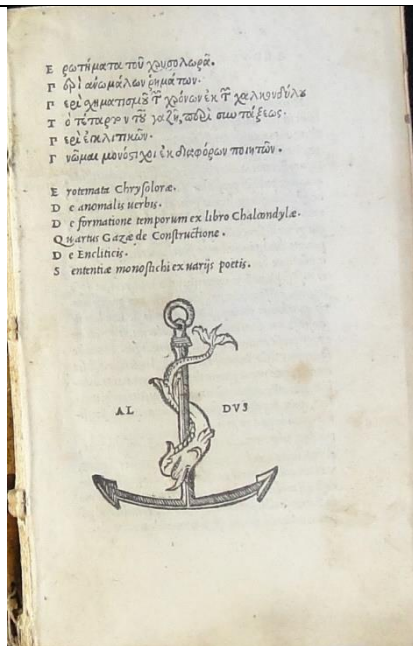 Ε ρωτήματα τοῦ χρυσολωρᾶ.
Π ερὶ ἀνωμάλων ῥημάτων.
Π ερὶ σχηματισμοῦ τῶν χρόνων ἐκ τῶν χαλκονδύλου
Τ ὸ τέταρτον τοῦ γαζῆ, περὶ συντάξεως.
Π ερὶ ἐγκλιτικῶν.
Γ νῶμαι μονόστιχοι ἐκ διαφόρων ποιητῶν.
E rotemata Chrysoloræ.
D e anomalis uerbis.
D e formatione temporum ex libro Chalcondylæ.
Q uartus Gazæ de Constructione.
D e Encliticis.
S ententiæ monostichi ex uarijs poetis.
AL DVS